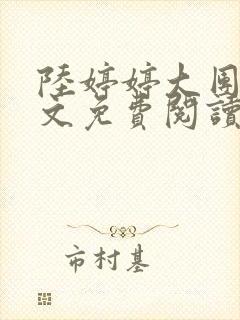 陸婷婷大圍
文免費閱讀
市村基